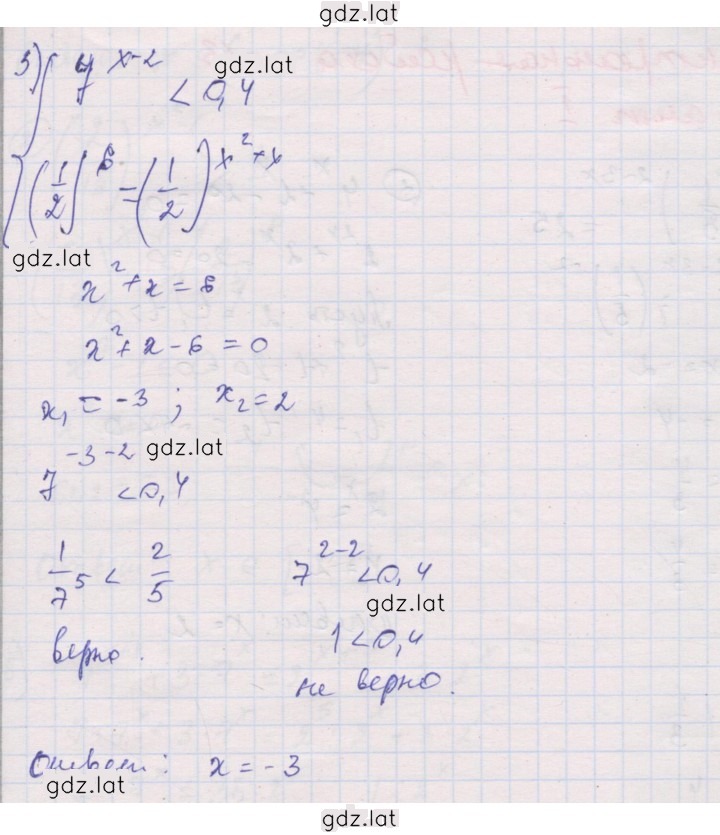 gdz.lat
3) { 7^(x-2) < 0,4
gdz.lat
(1/2)^6 = (1/2)^(x²+x)
gdz.lat
x² + x = 6
x² + x - 6 = 0
x₁ = -3 ; x₂ = 2
7^(-3-2) < 0,4
gdz.lat
1/7⁵ < 2/5
7^(2-2) < 0,4
gdz.lat
верно.
1 < 0,4
не верно.
Ответ: x = -3
gdz.lat
gdz.lat